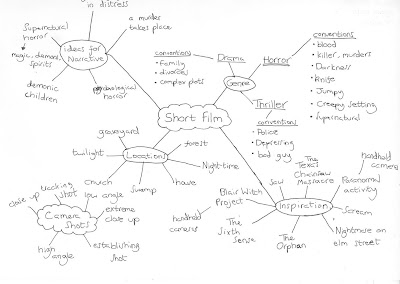 in distress
a murder
takes place
Supernatural
horror
ideas for
Narrative
magic, demons,
spirits
demonic
children
psychological
horror
conventions
• family
• divorces
• complex plots
Drama
Genre
Horror
conventions
• blood
• killer, murders
• Darkness
• knife
• Jumpy
• Creepy setting
• supernatural
Thriller
conventions
• Police
• Depressing
• bad guy
Short film
graveyard
twilight
Locations
forest
Night-time
church
swamp
house
close up
tracking
shot
low angle
extreme
close up
Camera
Shots
high
angle
establishing
shot
Blair Witch
Project
handheld
camera
Saw
The
Texas
Chainsaw
Massacre
handheld
camera
Paranormal
activity
Inspiration
Scream
The
Sixth
Sense
The
Orphan
Nightmare on
elm street